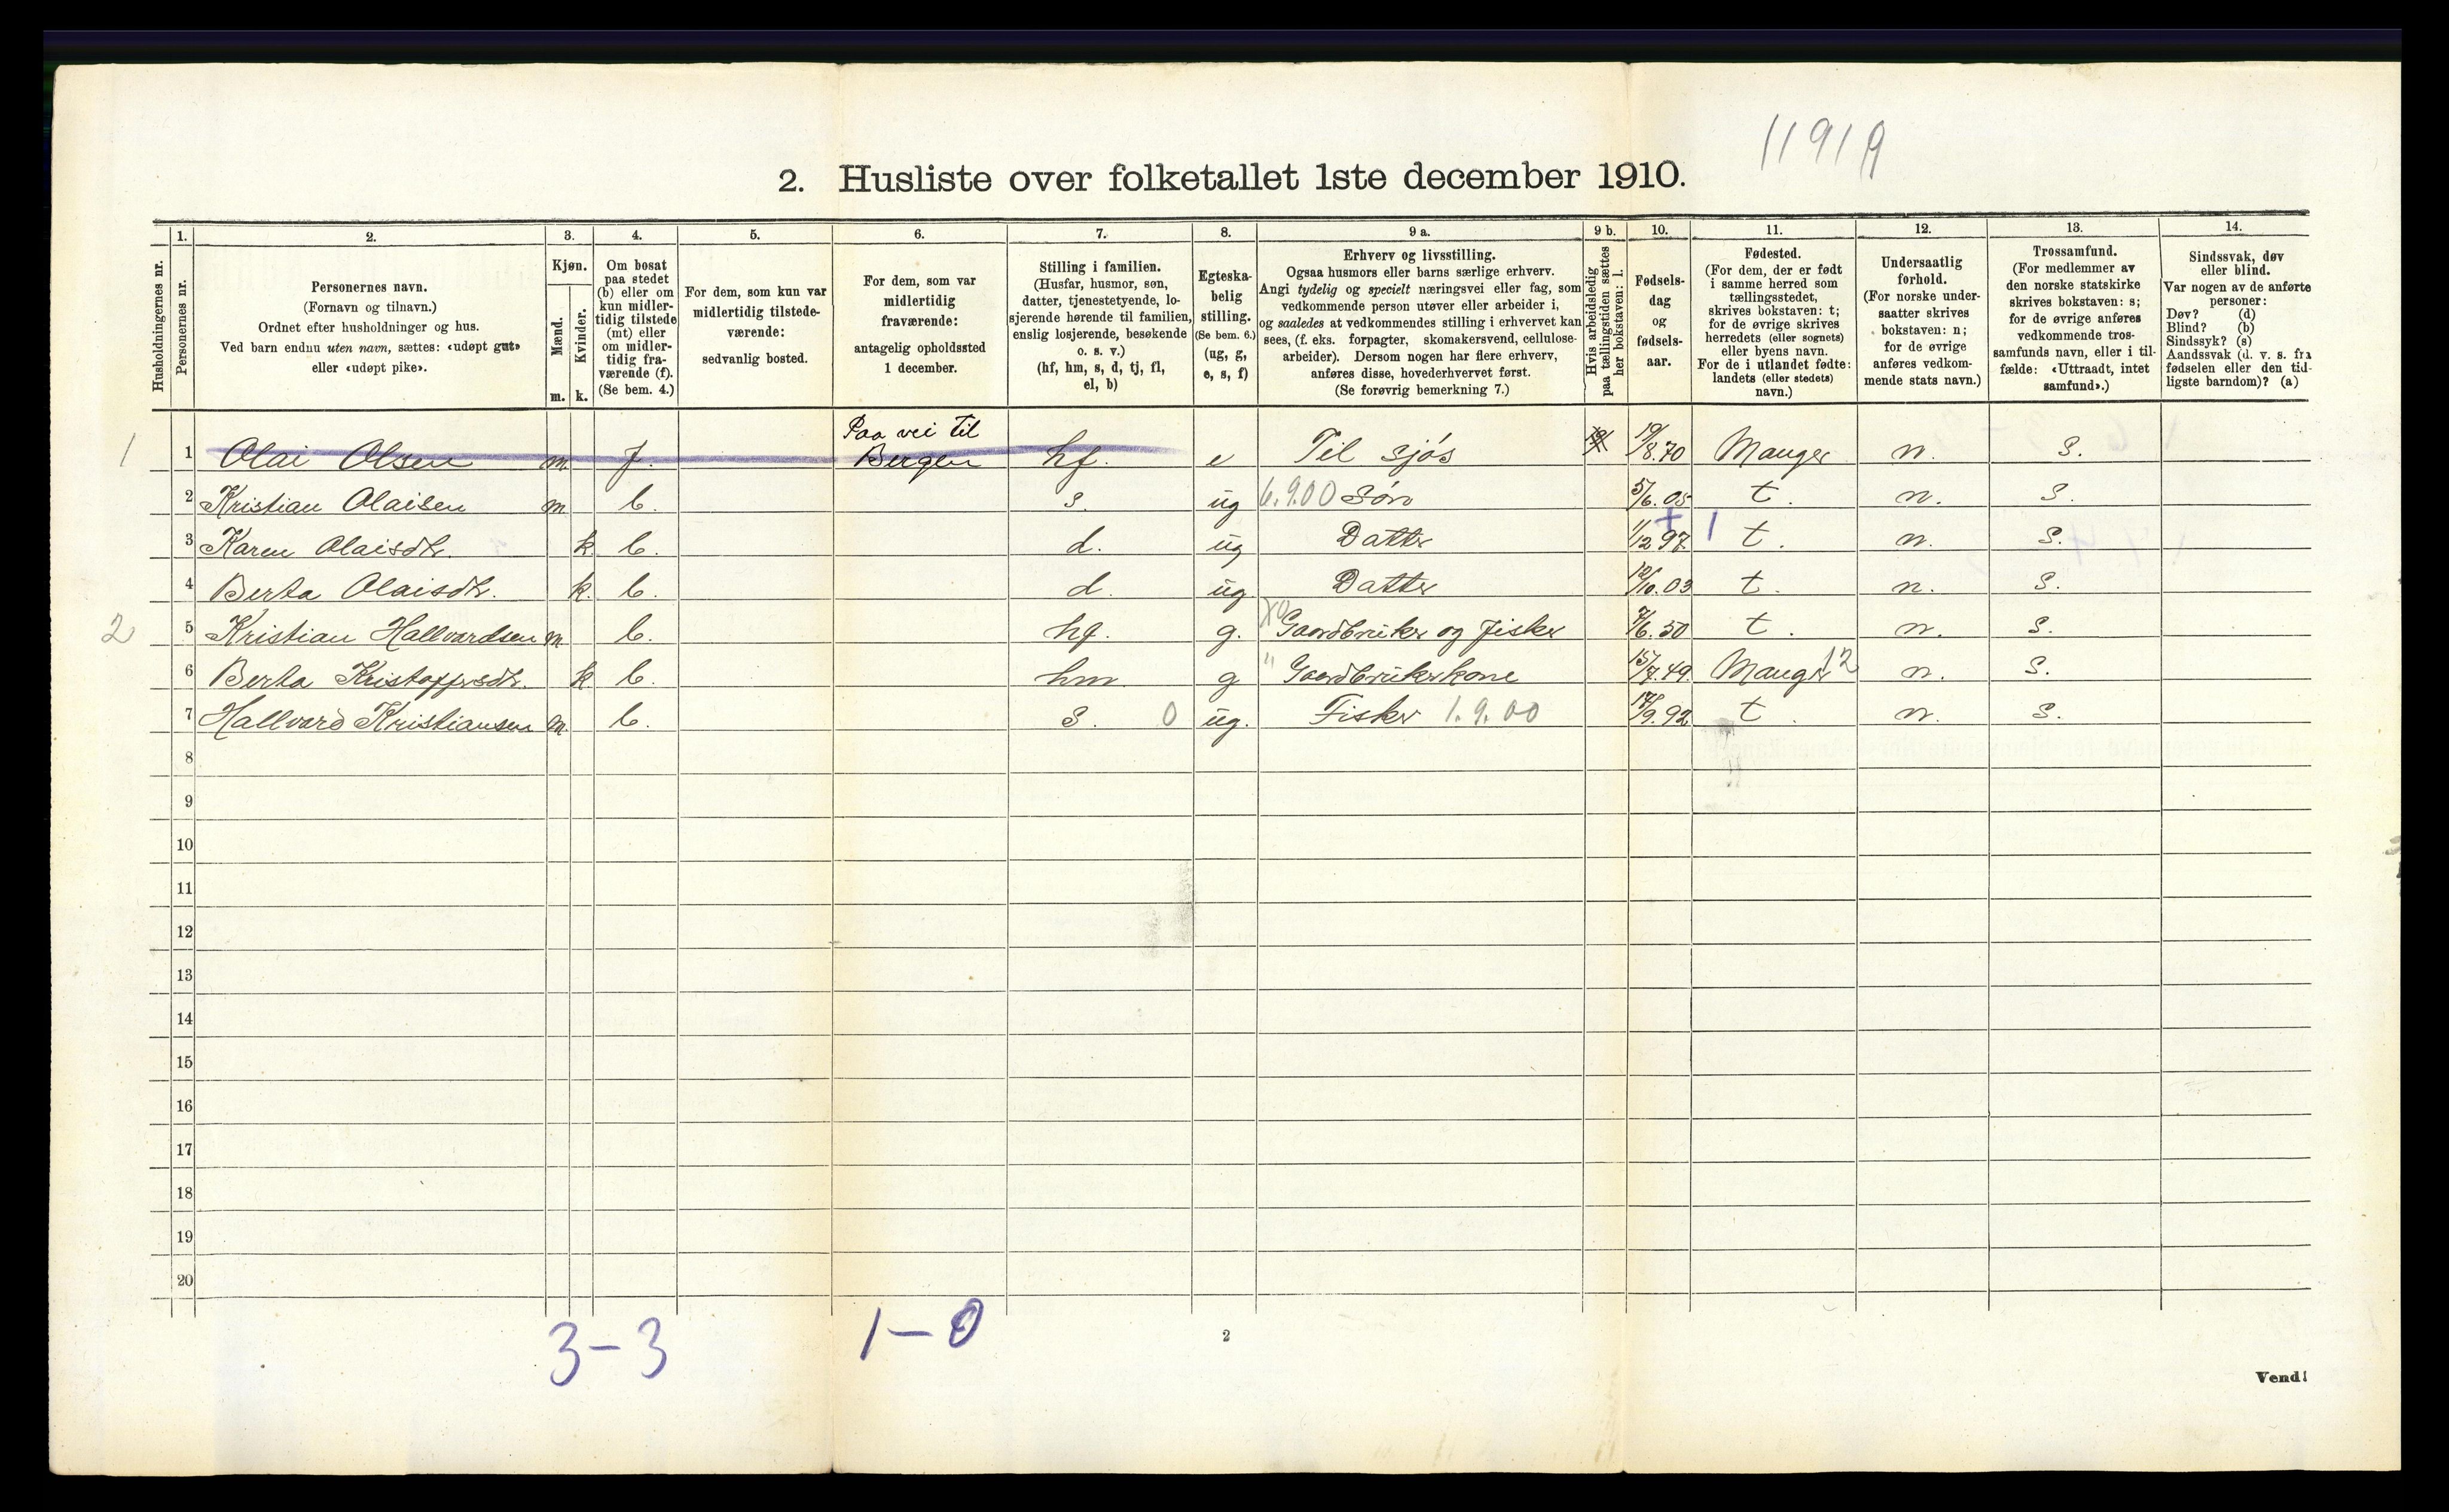 11919
2. Husliste over folketallet 1ste december 1910.
Husholdningernes nr.
1. Personernes nr.
2. Personernes navn. (Fornavn og tilnavn.) Ordnet efter husholdninger og hus. Ved barn endnu uten navn, sættes: «udøpt gut» eller «udøpt pike».
3. Kjøn. Mænd. m. Kvinder. k.
4. Om bosat paa stedet (b) eller om kun midlertidig tilstede (mt) eller om midlertidig fraværende (f). (Se bem. 4.)
5. For dem, som kun var midlertidig tilstedeværende: sedvanlig bosted.
6. For dem, som var midlertidig fraværende: antagelig opholdssted 1 december.
7. Stilling i familien. (Husfar, husmor, søn, datter, tjenestetyende, losjerende hørende til familien, enslig losjerende, besøkende o. s. v.) (hf, hm, s, d, tj, fl, el, b)
8. Egteskabelig stilling. (Se bem. 6.) (ug, g, e, s, f)
9 a. Erhverv og livsstilling. Ogsaa husmors eller barns særlige erhverv. Angi tydelig og specielt næringsvei eller fag, som vedkommende person utøver eller arbeider i, og saaledes at vedkommendes stilling i erhvervet kan sees, (f. eks. forpagter, skomakersvend, cellulose-arbeider). Dersom nogen har flere erhverv, anføres disse, hovederhvervet først. (Se forøvrig bemerkning 7.)
9 b. Hvis arbeidsledig paa tællingstiden sættes her bokstaven: l.
10. Fødselsdag og fødselsaar.
11. Fødested. (For dem, der er født i samme herred som tællingsstedet, skrives bokstaven: t; for de øvrige skrives herredets (eller sognets) eller byens navn. For de i utlandet fødte: landets (eller stedets) navn.)
12. Undersaatlig forhold. (For norske undersaatter skrives bokstaven: n; for de øvrige anføres vedkommende stats navn.)
13. Trossamfund. (For medlemmer av den norske statskirke skrives bokstaven: s; for de øvrige anføres vedkommende trossamfunds navn, eller i tilfælde: «Uttraadt, intet samfund».)
14. Sindssvak, døv eller blind. Var nogen av de anførte personer: Døv? (d) Blind? (b) Sindssyk? (s) Aandssvak (d. v. s. fra fødselen eller den tidligste barndom)? (a)
1 1 Olai Olsen m f. Paa vei til Bergen hf. e Til sjøs 19/8.70 Manger n. S.
2 Kristian Olaisen m b. s. ug 6.9.00 Søn 5/6.05 t. n. S.
3 Karen Olaisdtr. k b. d. ug Datter 1/12 97 1 t. n. S.
4 Berta Olaisdtr. k. b. d. ug Datter 12/10.03 t. n. S.
2 5 Kristian Hallvardsen m b. hf. g. Gaardbruker og fisker 7/6.50 t. n. S.
6 Berta Kristoffersdtr. k b. hm g " Gaardbrukerkone 15/7.49 Manger 12 n. S.
7 Hallvard Kristiansen m. b. s. 0 ug. Fisker 1.9.00 17/9.92 t. n. S.
8
9
10
11
12
13
14
15
16
17
18
19
20
3-3 1-0
2
Vend!